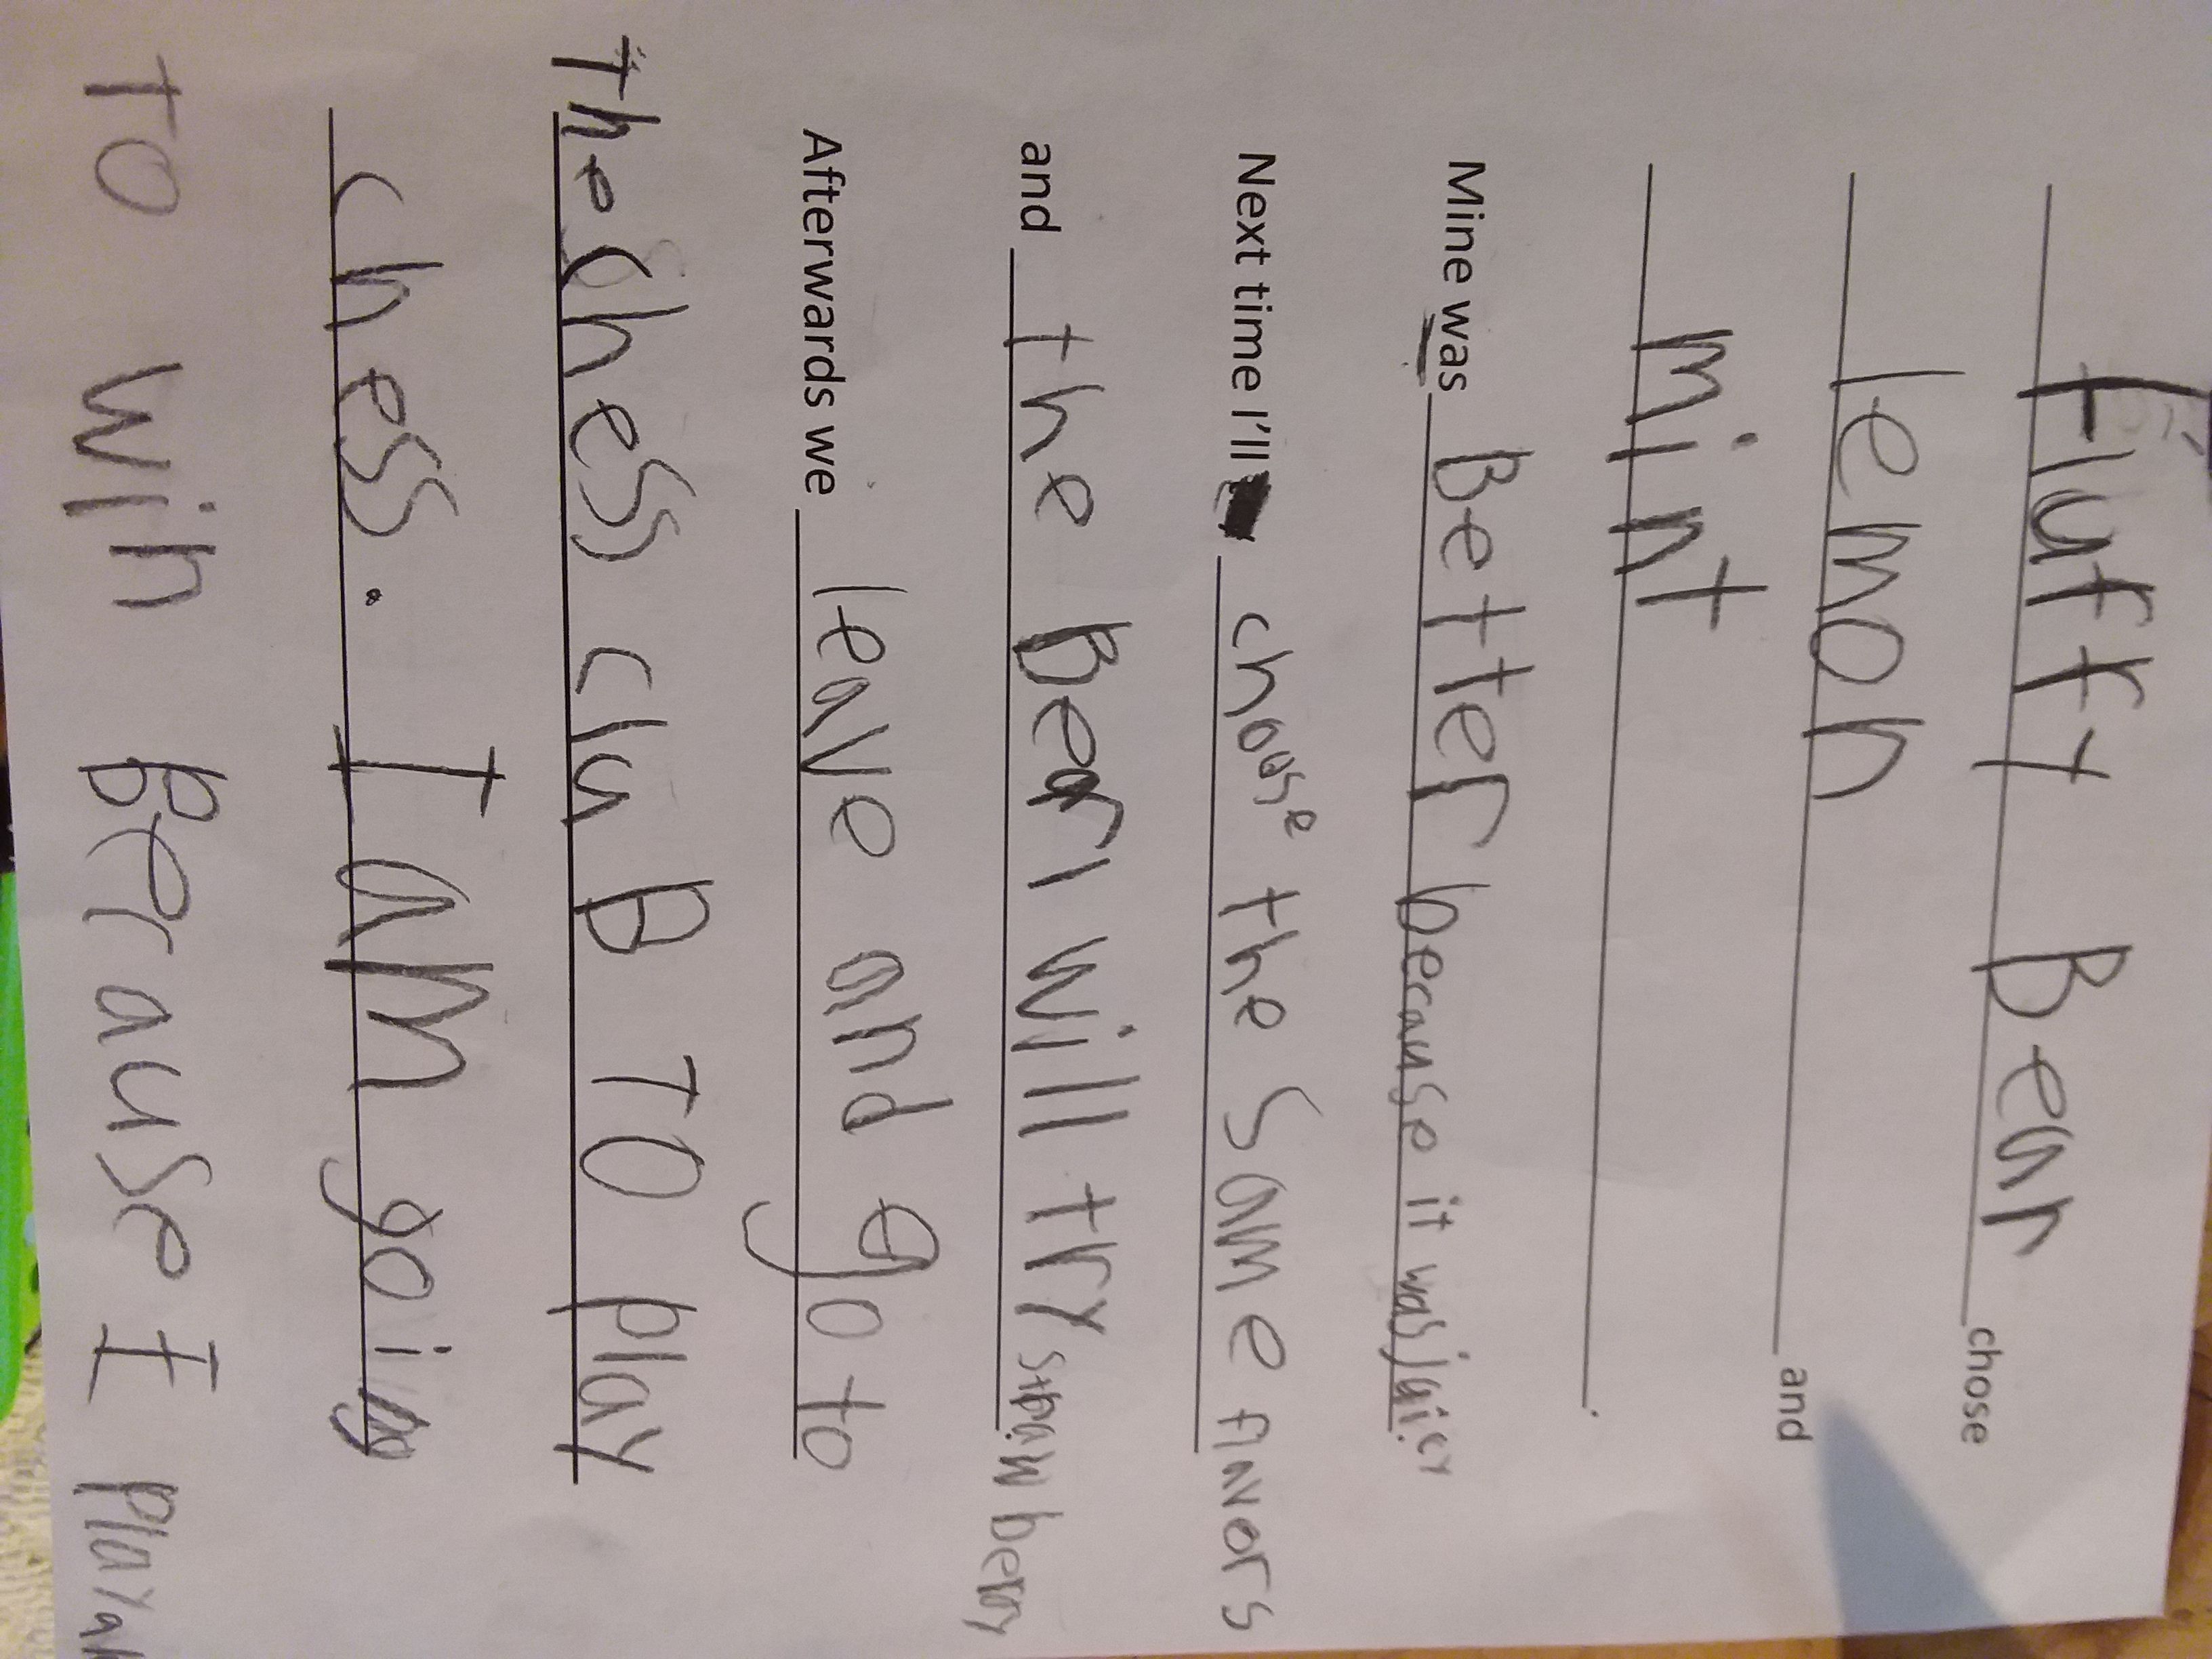 Fluffy Bear chose
lemon and
mint .
Mine was Better because it was juicy
Next time I'll choose the Same flavors
and the Bear will try strawberry
Afterwards we leave and go to
The chess cluB TO play
chess. I am going
TO win Because I